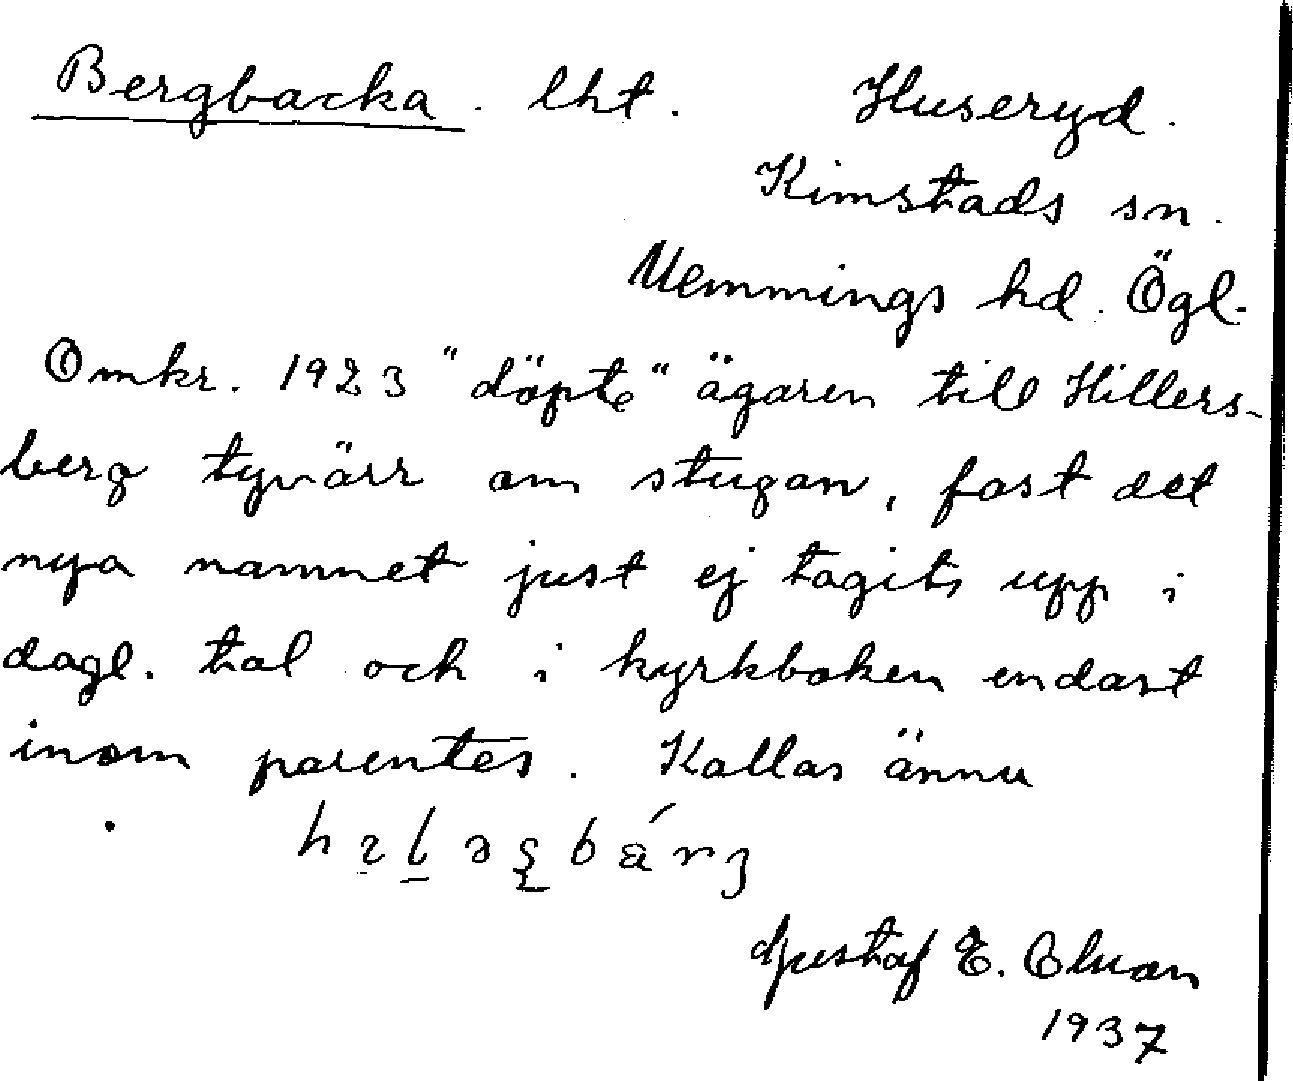 Bergbacka. lht. Huseryd.
Kimstads sn.
Memmings hd. Ögl.
Omkr. 1923 "döpte" ägaren till Hillers-
berg tyvärr om stugan, fast det
nya namnet just ej tagits upp i
dagl. tal och i kyrkboken endast
inom parentes. Kallas ännu
Gustaf E.
1937